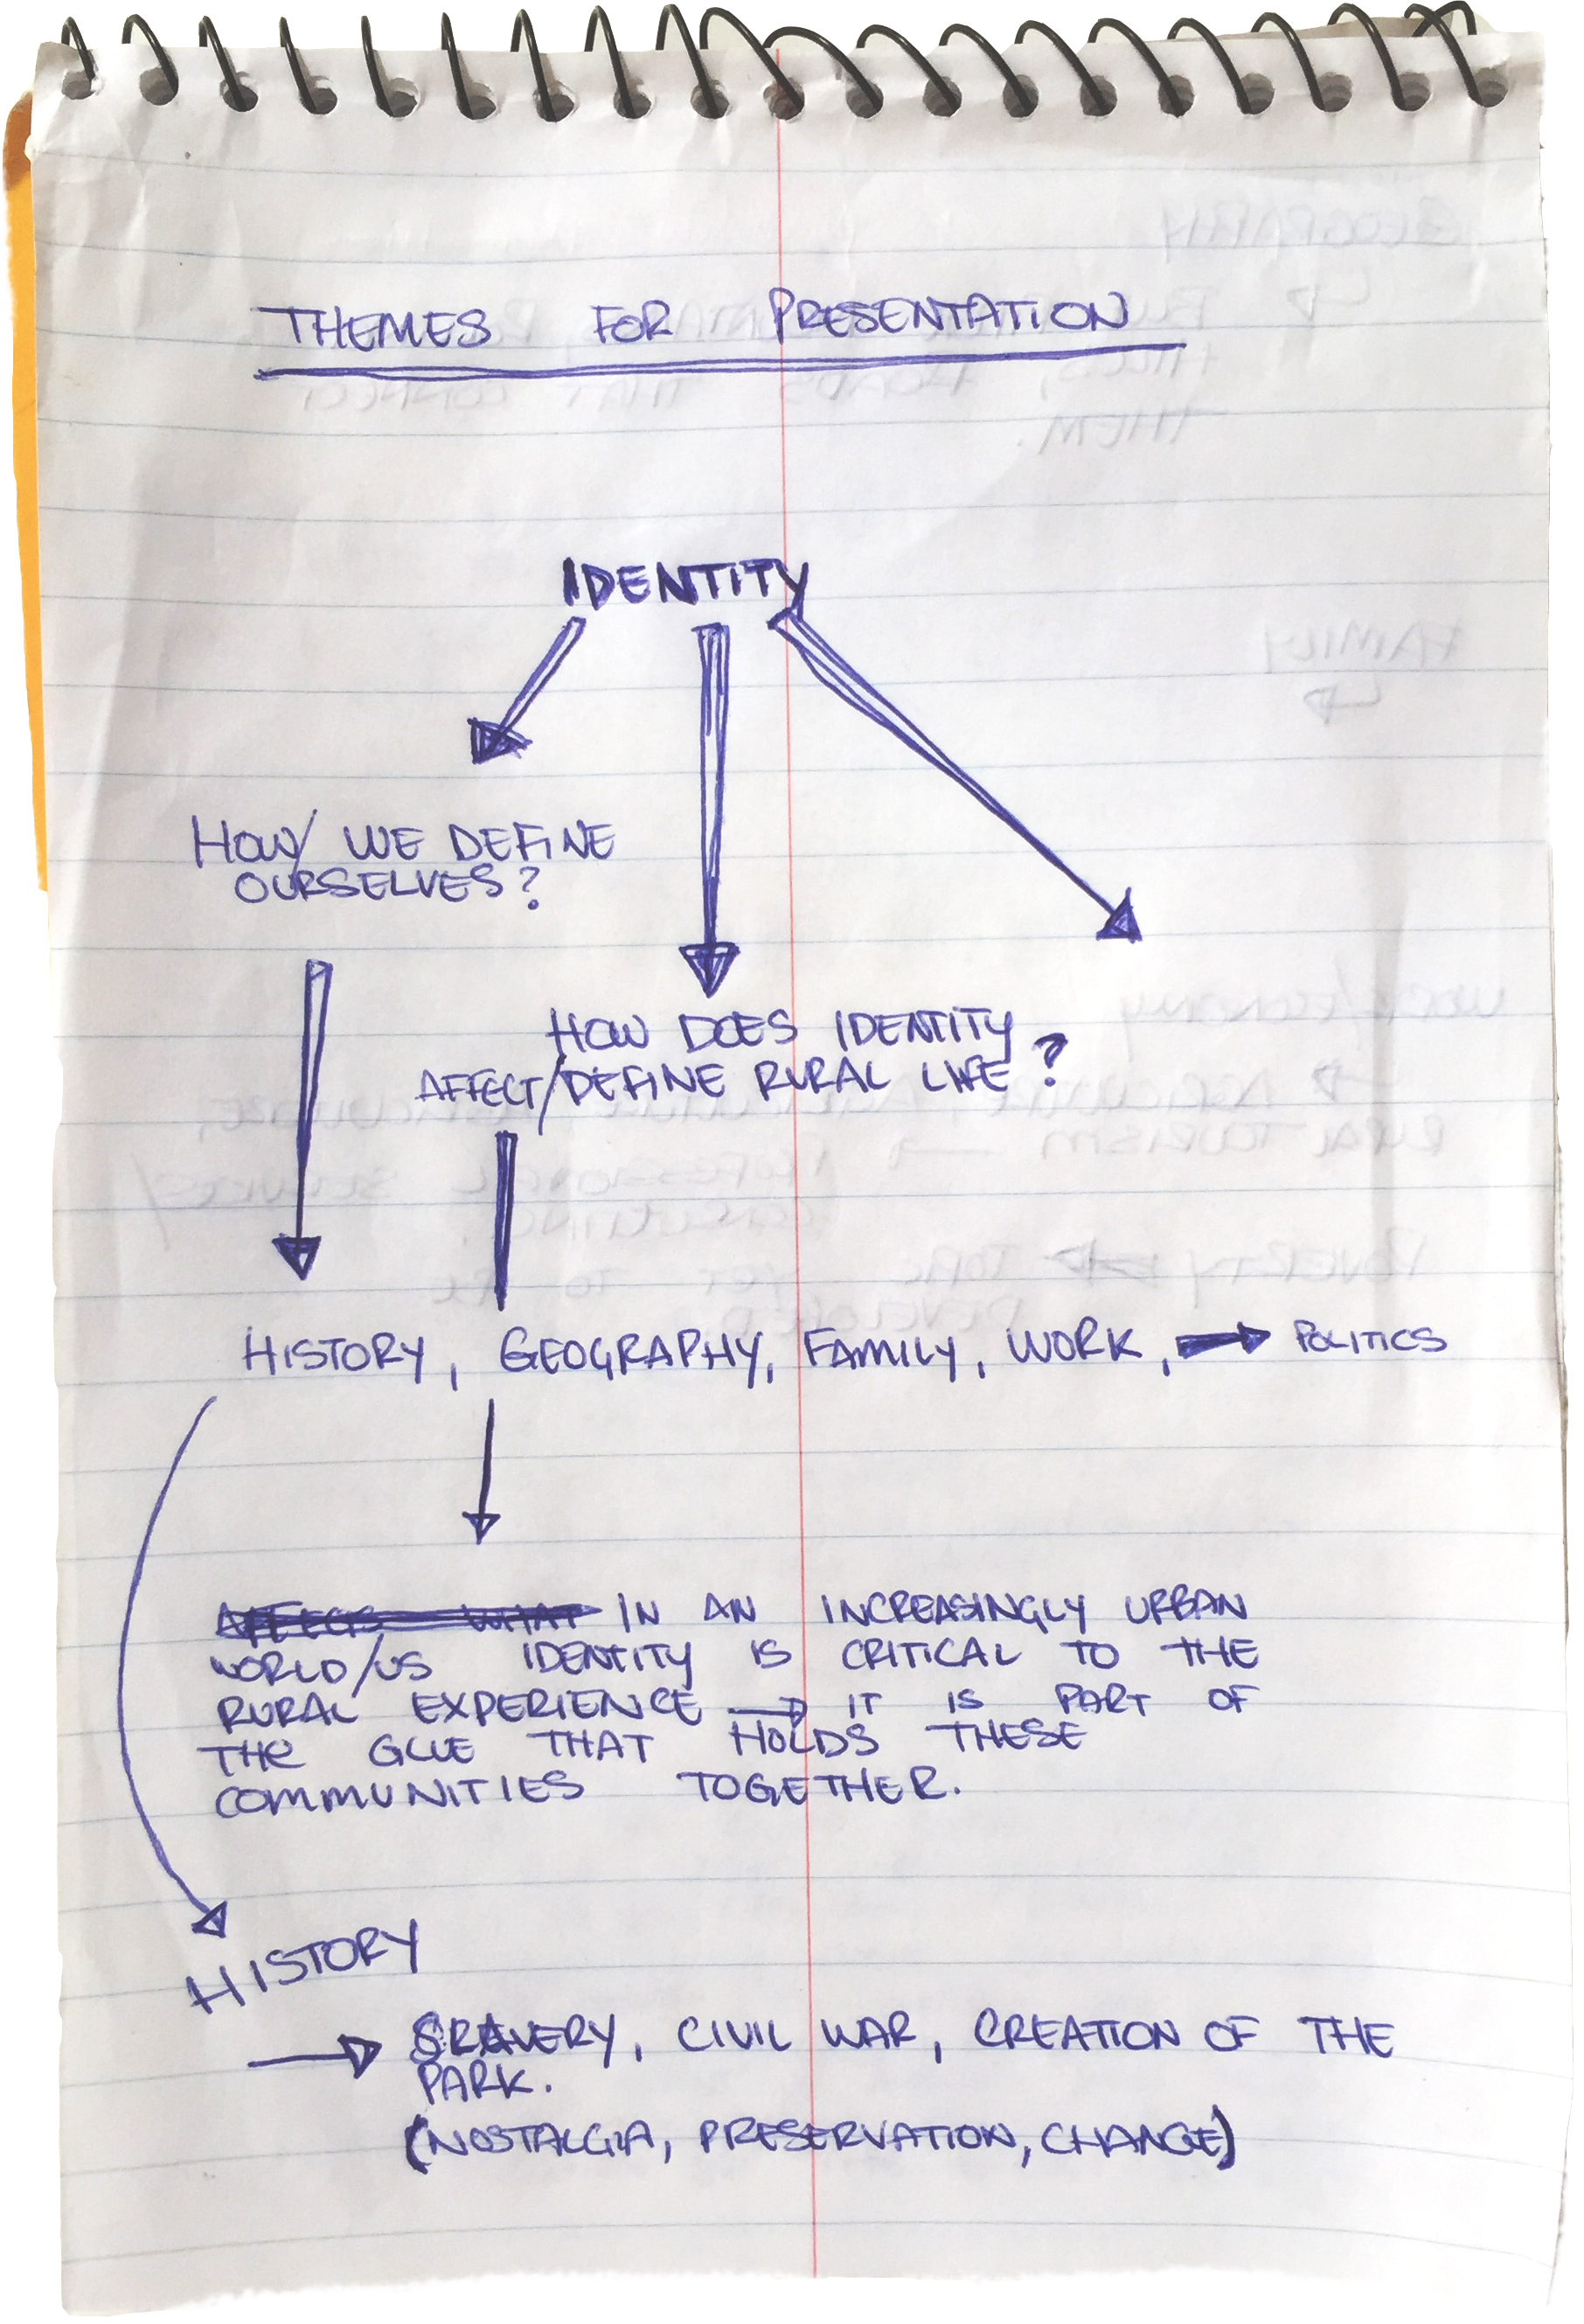 THEMES FOR PRESENTATION
IDENTITY
HOW WE DEFINE
OURSELVES?
HOW DOES IDENTITY
AFFECT/DEFINE RURAL LIFE?
HISTORY, GEOGRAPHY, FAMILY, WORK, → POLITICS
AFFECTS WHAT IN AN INCREASINGLY URBAN
WORLD/US IDENTITY IS CRITICAL TO THE
RURAL EXPERIENCE → IT IS PART OF
THE GLUE THAT HOLDS THESE
COMMUNITIES TOGETHER.
HISTORY
→ SLAVERY, CIVIL WAR, CREATION OF THE
PARK.
(NOSTALGIA, PRESERVATION, CHANGE)